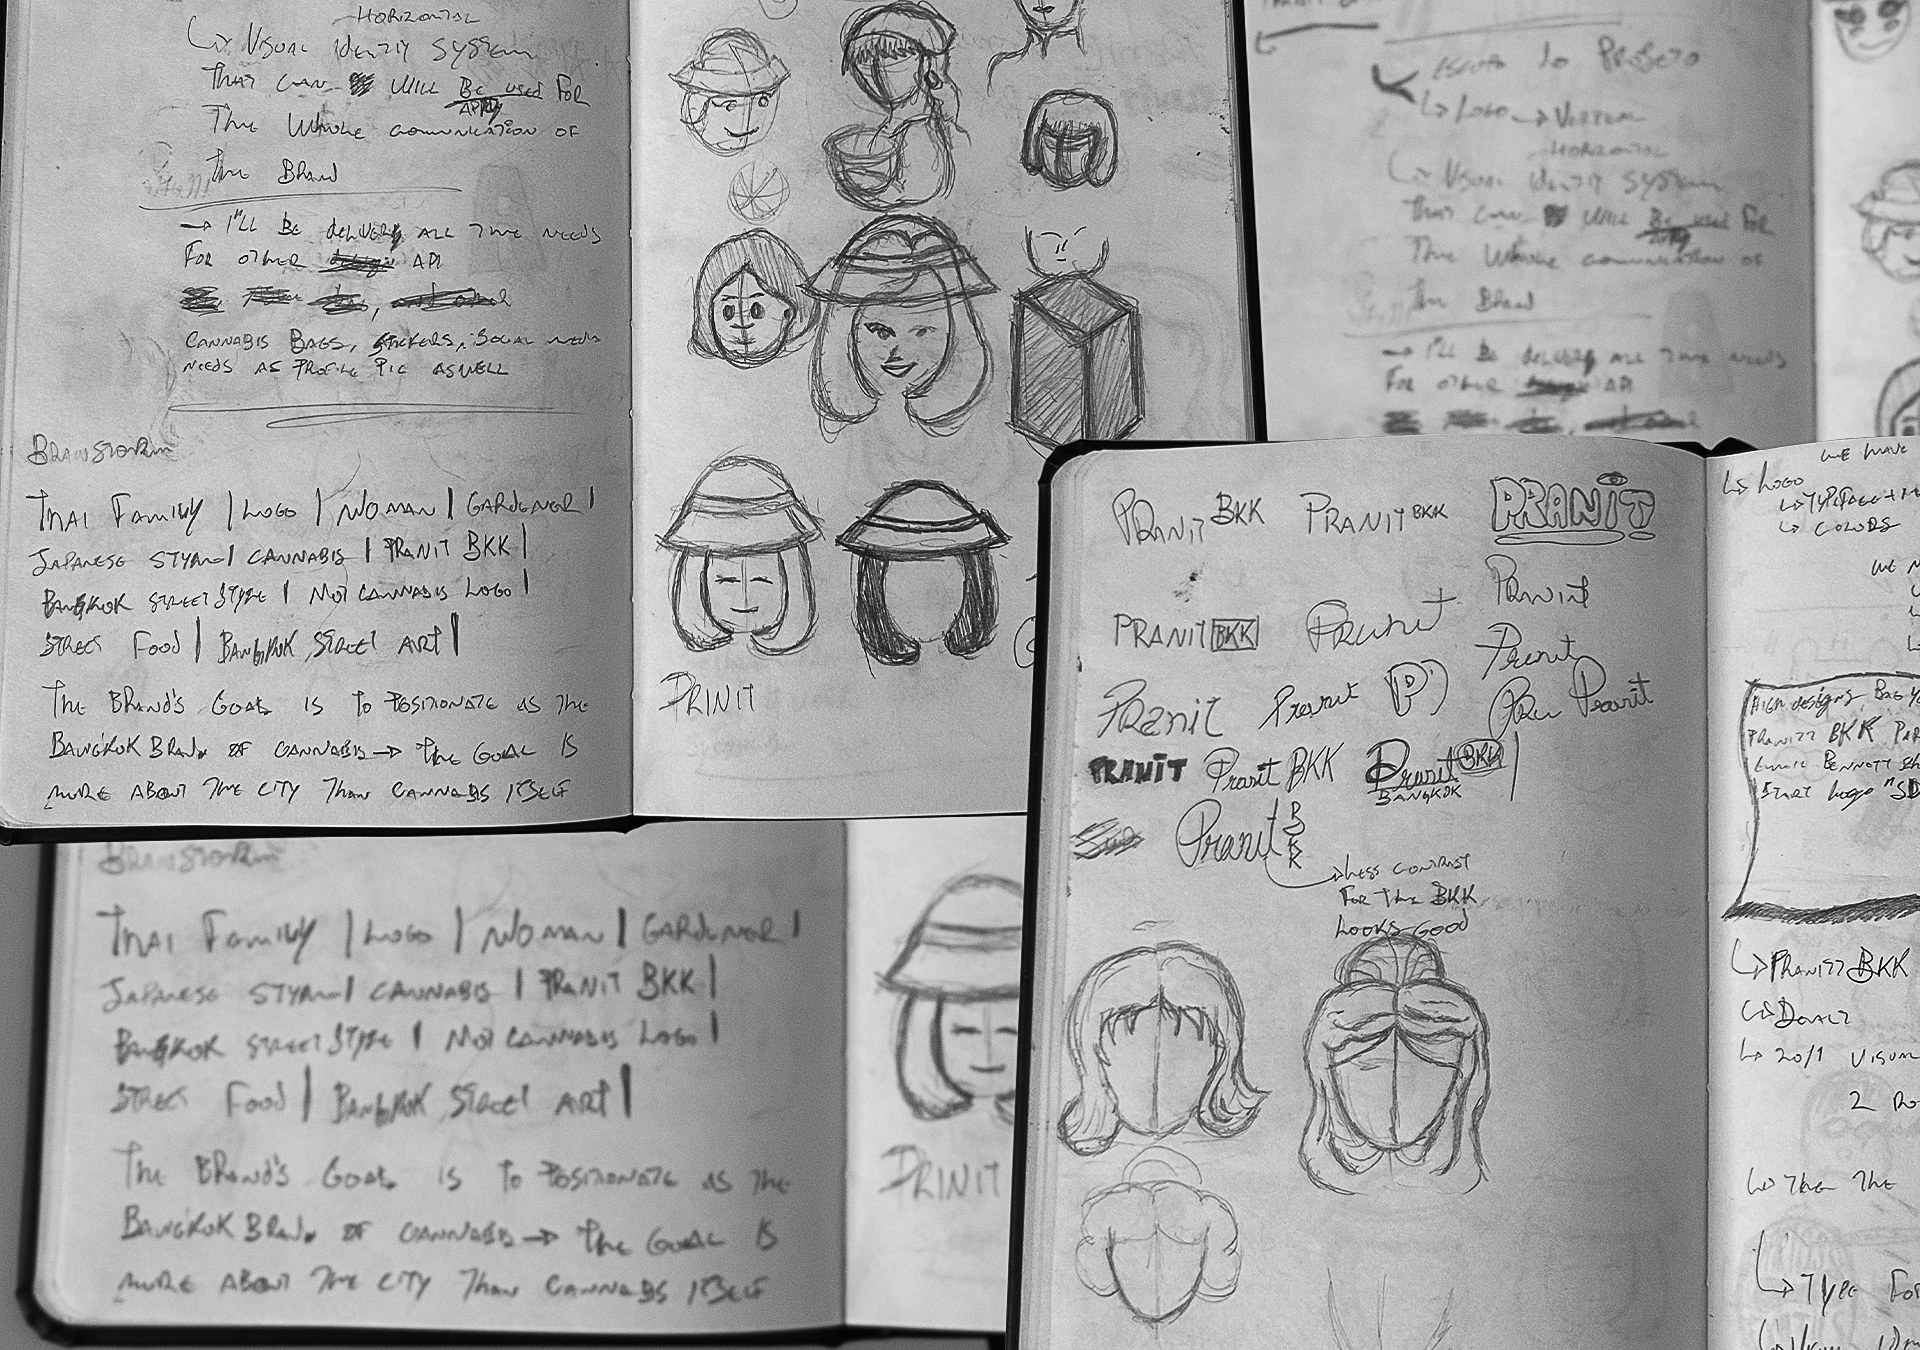 HORIZONTAL
↳ VISUAL IDENTIY SYSTEM
THAT CAN WILL BE USED FOR
APPLY
THE WHOLE COMUNICATION OF
THE BRAND
→ I'LL BE DELIVERY ALL THE NEEDS
FOR OTHER API
CANNABIS BAGS, STICKERS, SOCIAL NEEDS
NEEDS AS PROFILE PIC ASWELL
BRAINSTORM
THAI FAMILY | LOGO | WOMAN | GARDENER |
JAPANESE STYLE | CANNABIS | PRANIT BKK |
BANGKOK STREET STYLE | NOT CANNABIS LOGO |
STREET FOOD | BANGKOK STREET ART |
THE BRAND'S GOAL IS TO POSITIONATE AS THE
BANGKOK BRAND OF CANNABIS → THE GOAL IS
MORE ABOUT THE CITY THAN CANNABIS ITSELF
PRINIT
ESCOPO DO PROJETO
↳ LOGO → VERTICAL
HORIZONTAL
↳ VISUAL IDENTIY SYSTEM
THAT CAN WILL BE USED FOR
APPLY
THE WHOLE COMUNICATION OF
THE BRAND
→ I'LL BE DELIVERY ALL THE NEEDS
FOR OTHER API
BRAINSTORM
THAI FAMILY | LOGO | WOMAN | GARDENER |
JAPANESE STYLE | CANNABIS | PRANIT BKK |
BANGKOK STREET STYLE | NOT CANNABIS LOGO |
STREET FOOD | BANGKOK STREET ART |
THE BRAND'S GOAL IS TO POSITIONATE AS THE
BANGKOK BRAND OF CANNABIS → THE GOAL IS
MORE ABOUT THE CITY THAN CANNABIS ITSELF
PRINIT
PRANIT BKK PRANIT BKK PRANIT
Pranit
PRANIT BKK Pranit
Pranit
Pranit Pranit P Pra Pranit
PRANIT Pranit BKK Pranit BKK
BANGKOK
Pranit BKK
→ LESS CONTRAST
FOR THE BKK
LOOKS GOOD
WE HAVE
↳ LOGO
↳ TYPEFACE +
↳ COLORS
WE
HIGH DESIGNS, BAG
PRANIT BKK
BENNETT
START LOGO
↳ PRANITT BKK
↳
↳ 20/1 VISUAL
2
↳ THE
↳ TYPE FOR